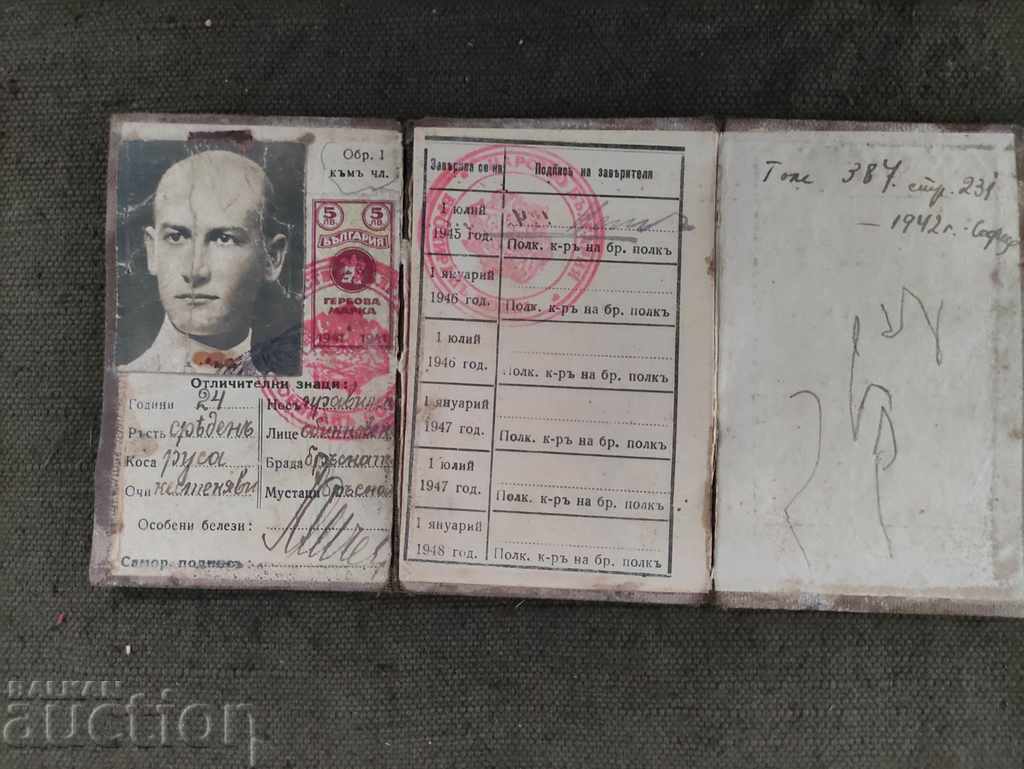 Обр. 1
къмъ чл.
5 5
ЛВ. ЛВ.
БЪЛГАРИЯ
ГЕРБОВА
МАРКА
1941 1941
Отличителни знаци:
Години 24
Ръсть срѣденъ
Коса руса
Очи кестеняви
Носъ
Лице
Брада бръсната
Мустаци
Особени белези:
Самор. подпись:
Заверява се на
Подпись на заверителя
1 юлий
1945 год.
Полк. к-ръ на бр. полкъ
1 януарий
1946 год.
Полк. к-ръ на бр. полкъ
1 юлий
1946 год.
Полк. к-ръ на бр. полкъ
1 януарий
1947 год.
Полк. к-ръ на бр. полкъ
1 юлий
1947 год.
Полк. к-ръ на бр. полкъ
1 януарий
1948 год.
Полк. к-ръ на бр. полкъ
Томъ 387. стр. 231
– 1942 г. София
BALKAN
auction